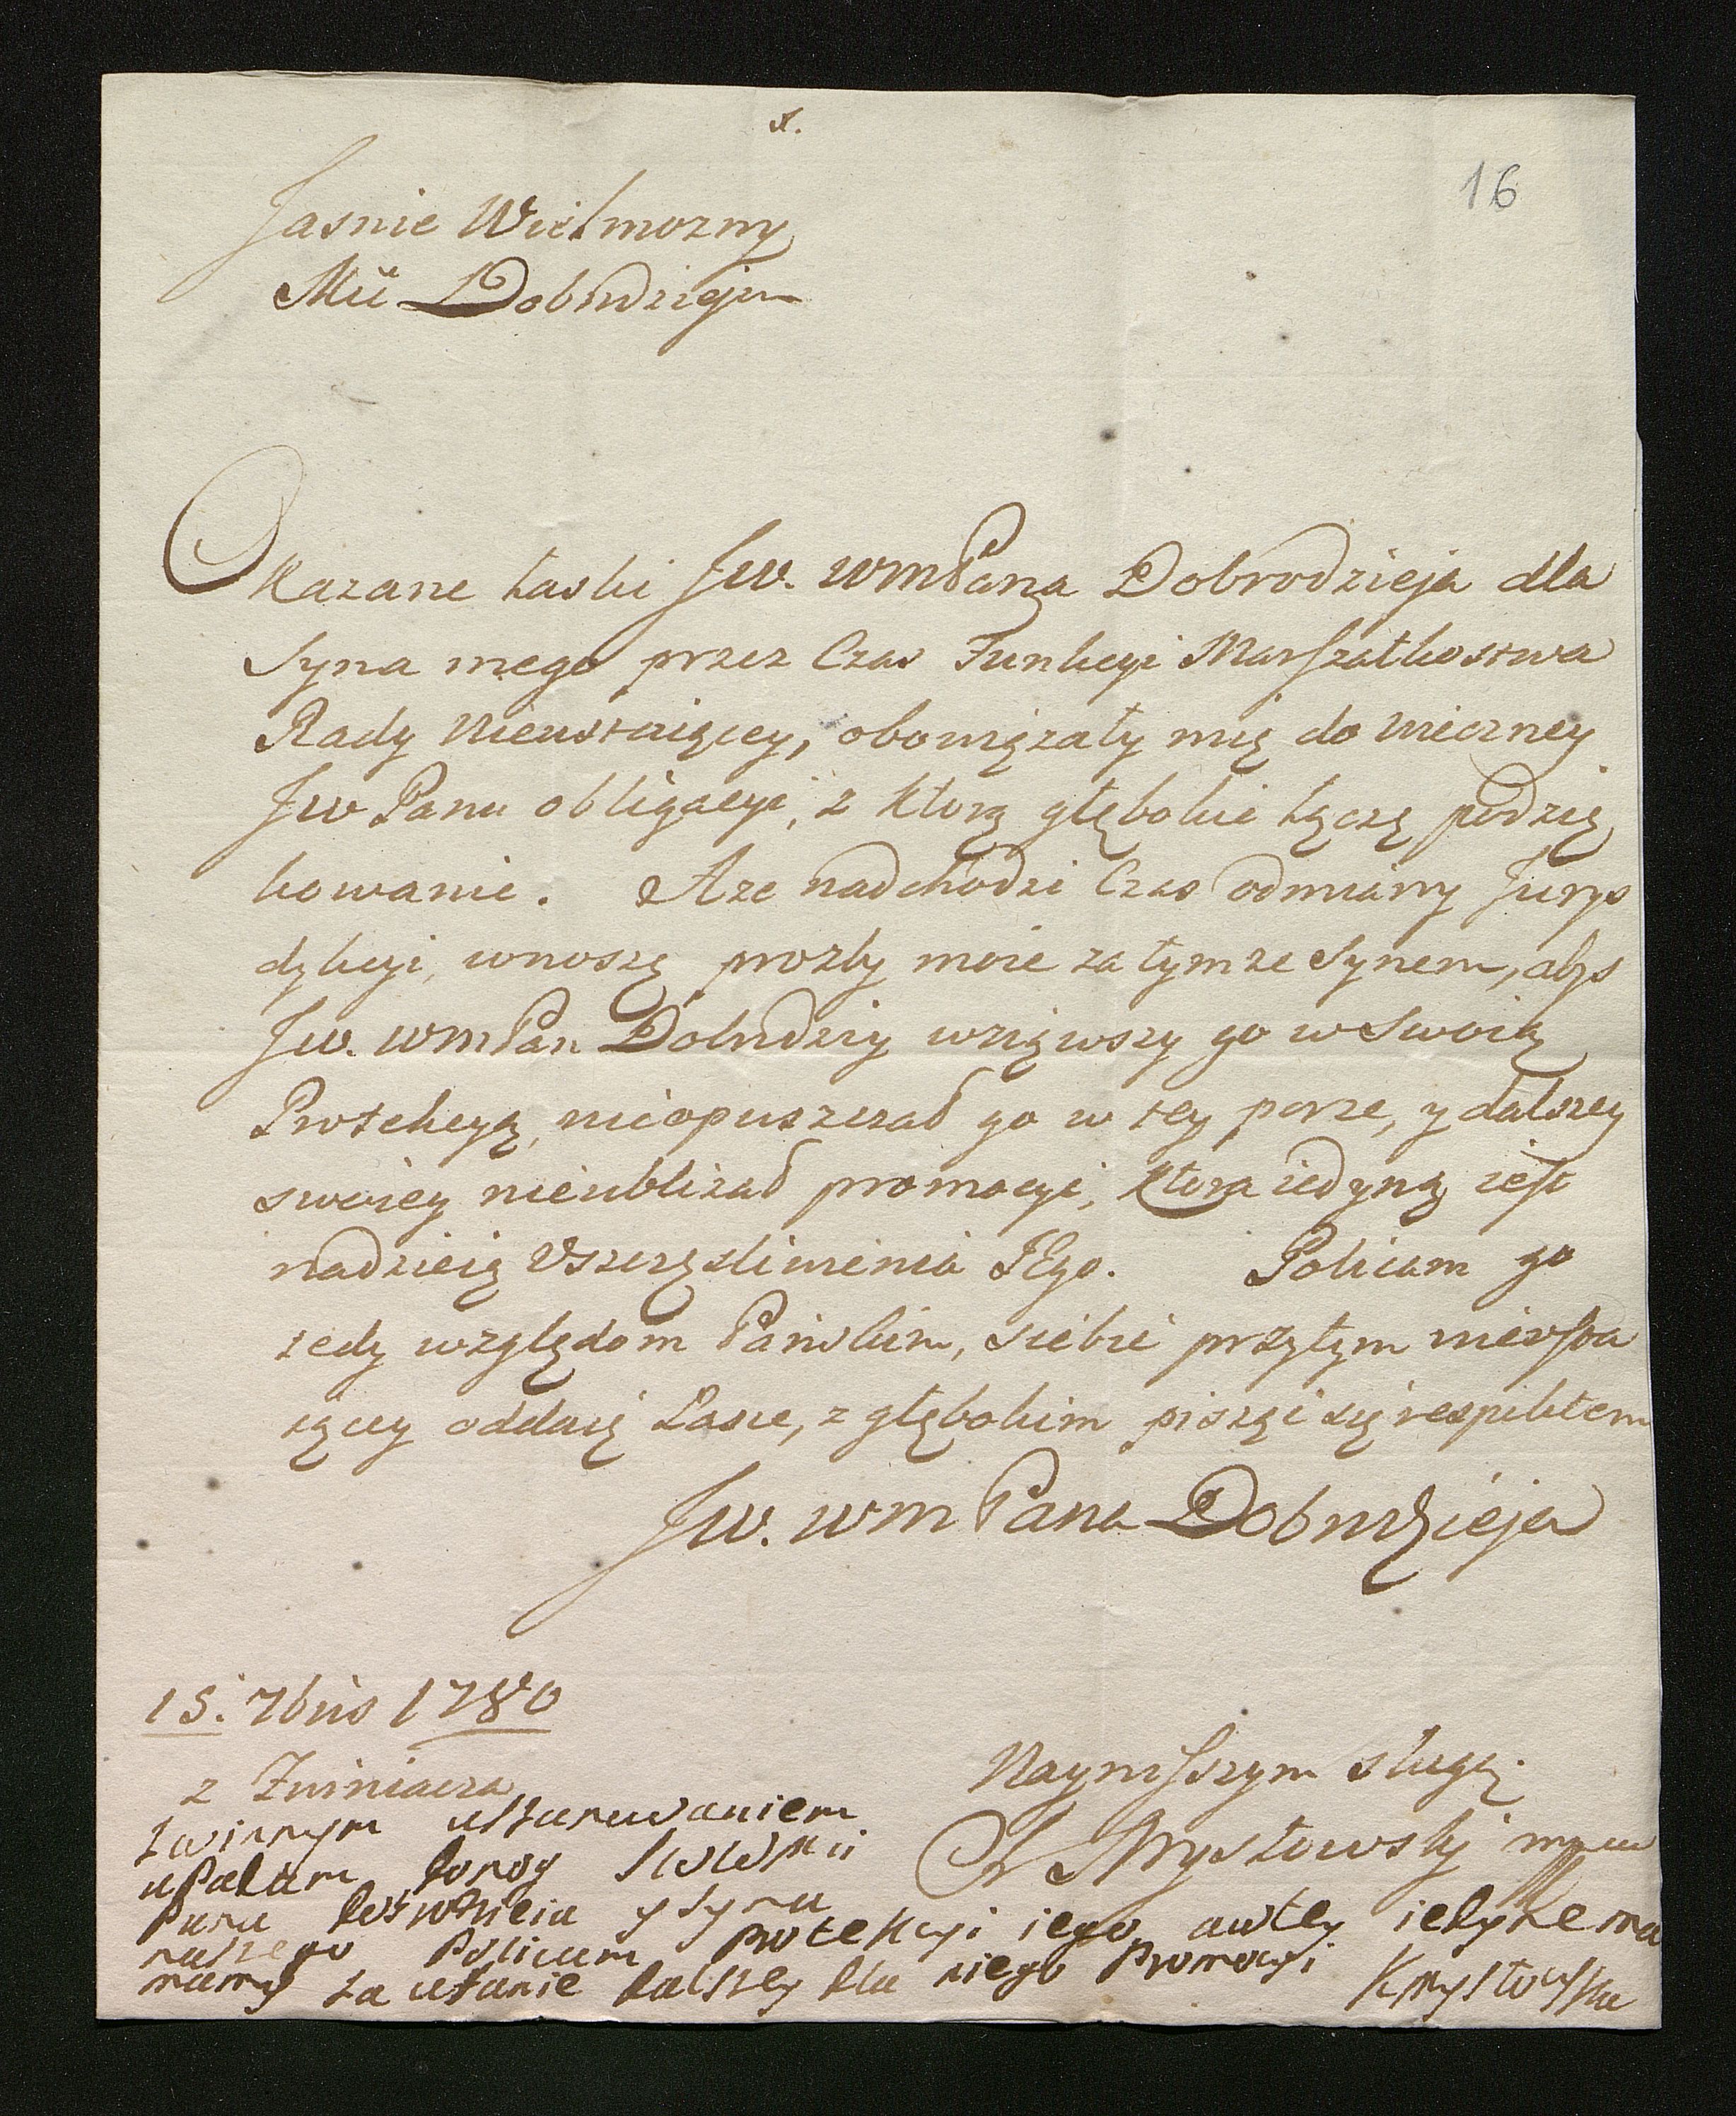 16
Jasnie Wielmozny
Mci Dobrodzieju
Okazane Łaski Jw. wmPana Dobrodzieja dla
Syna mego przez Czas Funkcyi Marszałkostwa
Rady Nieustaiącey, obowiązały mię do wieczney
Jw Panu obligacyi, z Ktorą głębokie łączę podzię
kowanie. Aze nadchodzi Czas odmiany Jurys
dykcyi, wnoszę prozby moie za tymze Synem, abys
Jw. wmPan Dobrodziey wziąwszy go w Swoią
Protekcyą, nieopuszczał go w tey porze, y dalszey
swoiey nieubliżał promocyi, Ktora iedyną iest
nadzieią Vszczęśliwienia JEgo. Policam go
tedy względom Pańskim, siebie przytym nieusta
iącey oddaię Łasce, z głębokim piszę się respektem
Jw. wm Pana Dobrodzieja
15. 7bris 1780
z Żwiniacza
Nayniższym sługą
K Mysłowski mp
z winnym uszanowaniem
upadam do nog Jw WMci
Pana Dobrodzieia y syna
naszego Policam protekcyi iego, w tey iedyne ma
mamy za ufanie dalszey dla niego Promocyi KMysłowska